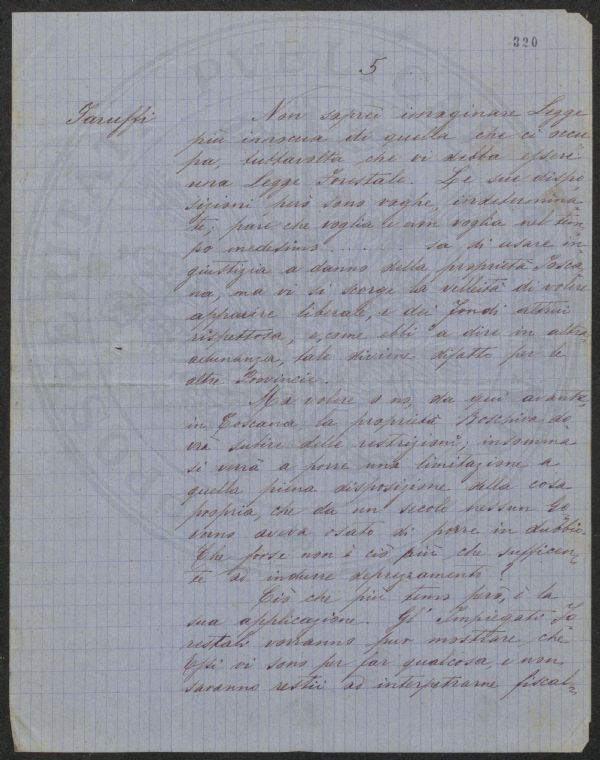 320
5
Taruffi
Non saprei immaginare Legge
più innocua di quella che ci occu
pa, tuttavolta che vi debba essere
una Legge Forestale. Le sue dispo
sizioni però sono vaghe, indetermina
te; pare che voglia e non voglia nel tem
po medesimo ........ sa di usare in
giustizia a danno della proprietà Tosca
na, ma vi si scorge la velleità di volere
apparire liberale, e dei fondi altrui
rispettosa, e, come ebbi a dire in altra
adunanza, tale diviene difatto per le
altre Provincie.
Ma volere o no, da qui avanti
in Toscana la proprietà Boschiva do
vrà subire delle restrizioni; insomma
si verrà a porre una limitazione a
quella piena disposizione della cosa
propria, che da un secolo nessun Go
verno aveva osato di porre in dubbio.
Che forse non è ciò più che sufficen=
te ad indurre deprezzamenti?
Ciò che più temo però, è la
sua applicazione. Gl' Impiegati Fo
restali vorranno pur mostrare che
Essi vi sono per far qualcosa, e non
saranno restii ad interpetrarne fiscal=